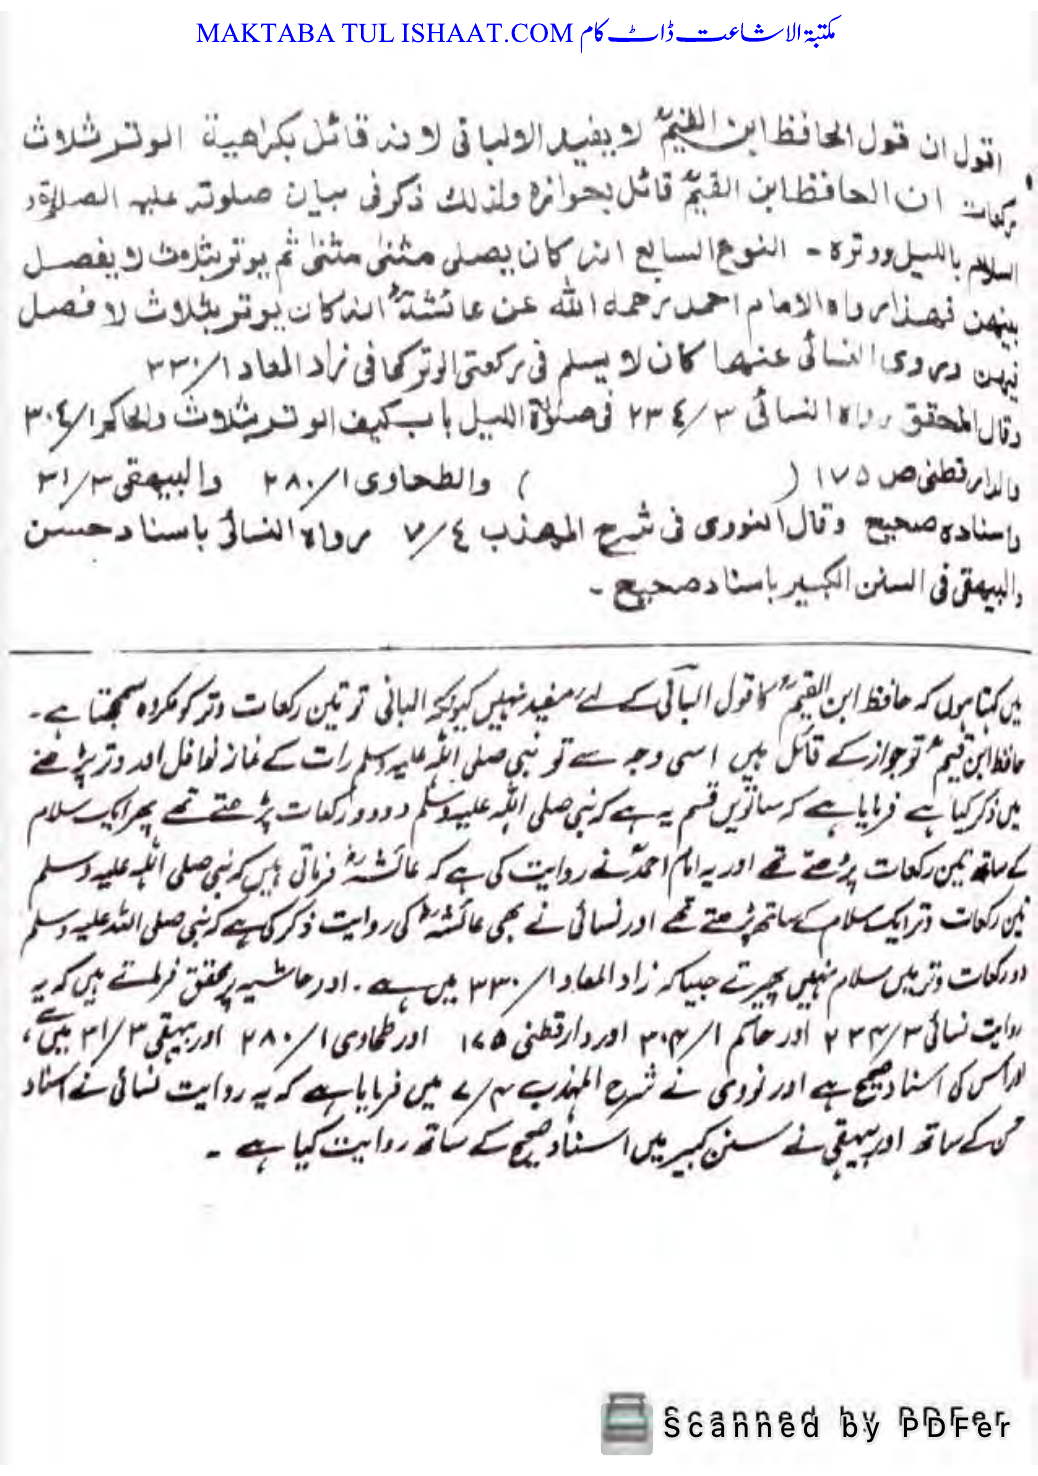 MAKTABA TUL ISHAAT.COM مکتبۃ الاشاعت ڈاٹ کام
اقول ان قول الحافظ ابن القیمؒ لا یفید الالبانی لانہ قائل بکراھیۃ الوتر ثلاث
رکعات ان الحافظ ابن القیمؒ قائل بجوازہ ولذلک ذکر فی بیان صلوتہ علیہ الصلاۃ و
السلام باللیل ووترہ ۔ النوع السابع انہ کان یصلی مثنیٰ مثنیٰ ثم یوتر بثلاث لا یفصل
بینھن فھذا رواہ الامام احمد رحمہ اللہ عن عائشۃؓ انہ کان یوتر بثلاث لا فصل
فیھن وروی النسائی عنھا کان لا یسلم فی رکعتی الوتر کما فی زاد المعاد ۱/۳۳۰
وقال المحقق رواہ النسائی ۳/۲۳٤ فی صلوٰۃ اللیل باب کیف الوتر بثلاث والحاکم ۱/۳۰٤
والدارقطنی ص ۱۷۵ ( ) والطحاوی ۱/۲۸۰ والبیھقی ۳/۳۱
واسنادہ صحیح وقال النوری فی شرح المھذب ٤/۷ رواہ النسائی باسناد حسن
والبیھقی فی السنن الکبیر باسناد صحیح ۔
میں کہتا ہوں کہ حافظ ابن القیمؒ کا قول البانی کے لئے مفید نہیں کیونکہ البانی تو تین رکعات وتر کو مکروہ سمجھتا ہے ۔
حافظ ابن قیمؒ تو جواز کے قائل ہیں اسی وجہ سے تو نبی صلی اللہ علیہ وسلم رات کے نماز نوافل اور وتر پڑھنے
میں ذکر کیا ہے فرمایا ہے کہ ساتویں قسم یہ ہے کہ نبی صلی اللہ علیہ وسلم دو دو رکعات پڑھتے تھے پھر ایک سلام
کے ساتھ تین رکعات پڑھتے تھے اور یہ امام احمدؒ نے روایت کی ہے کہ عائشہؓ فرماتی ہیں کہ نبی صلی اللہ علیہ وسلم
تین رکعات وتر ایک سلام کے ساتھ پڑھتے تھے اور نسائی نے بھی عائشہؓ کی روایت ذکر کی ہے کہ نبی صلی اللہ علیہ وسلم
دو رکعات وتر میں سلام نہیں پھیرتے جیسا کہ زاد المعاد ۱/۳۳۰ میں ہے ۔ اور حاشیہ پر محقق فرماتے ہیں کہ یہ
روایت نسائی ۳/۲۳۴ اور حاکم ۱/۳۰۴ اور دارقطنی ۱۷۵ اور طحاوی ۱/۲۸۰ اور بیہقی ۳/۳۱ میں ہے ،
اور اس کی اسناد صحیح ہے اور نووی نے شرح المہذب ۴/۷ میں فرمایا ہے کہ یہ روایت نسائی نے اسناد
حسن کے ساتھ اور بیہقی نے سنن کبیر میں اسناد صحیح کے ساتھ روایت کیا ہے ۔
Scanned by PDFer